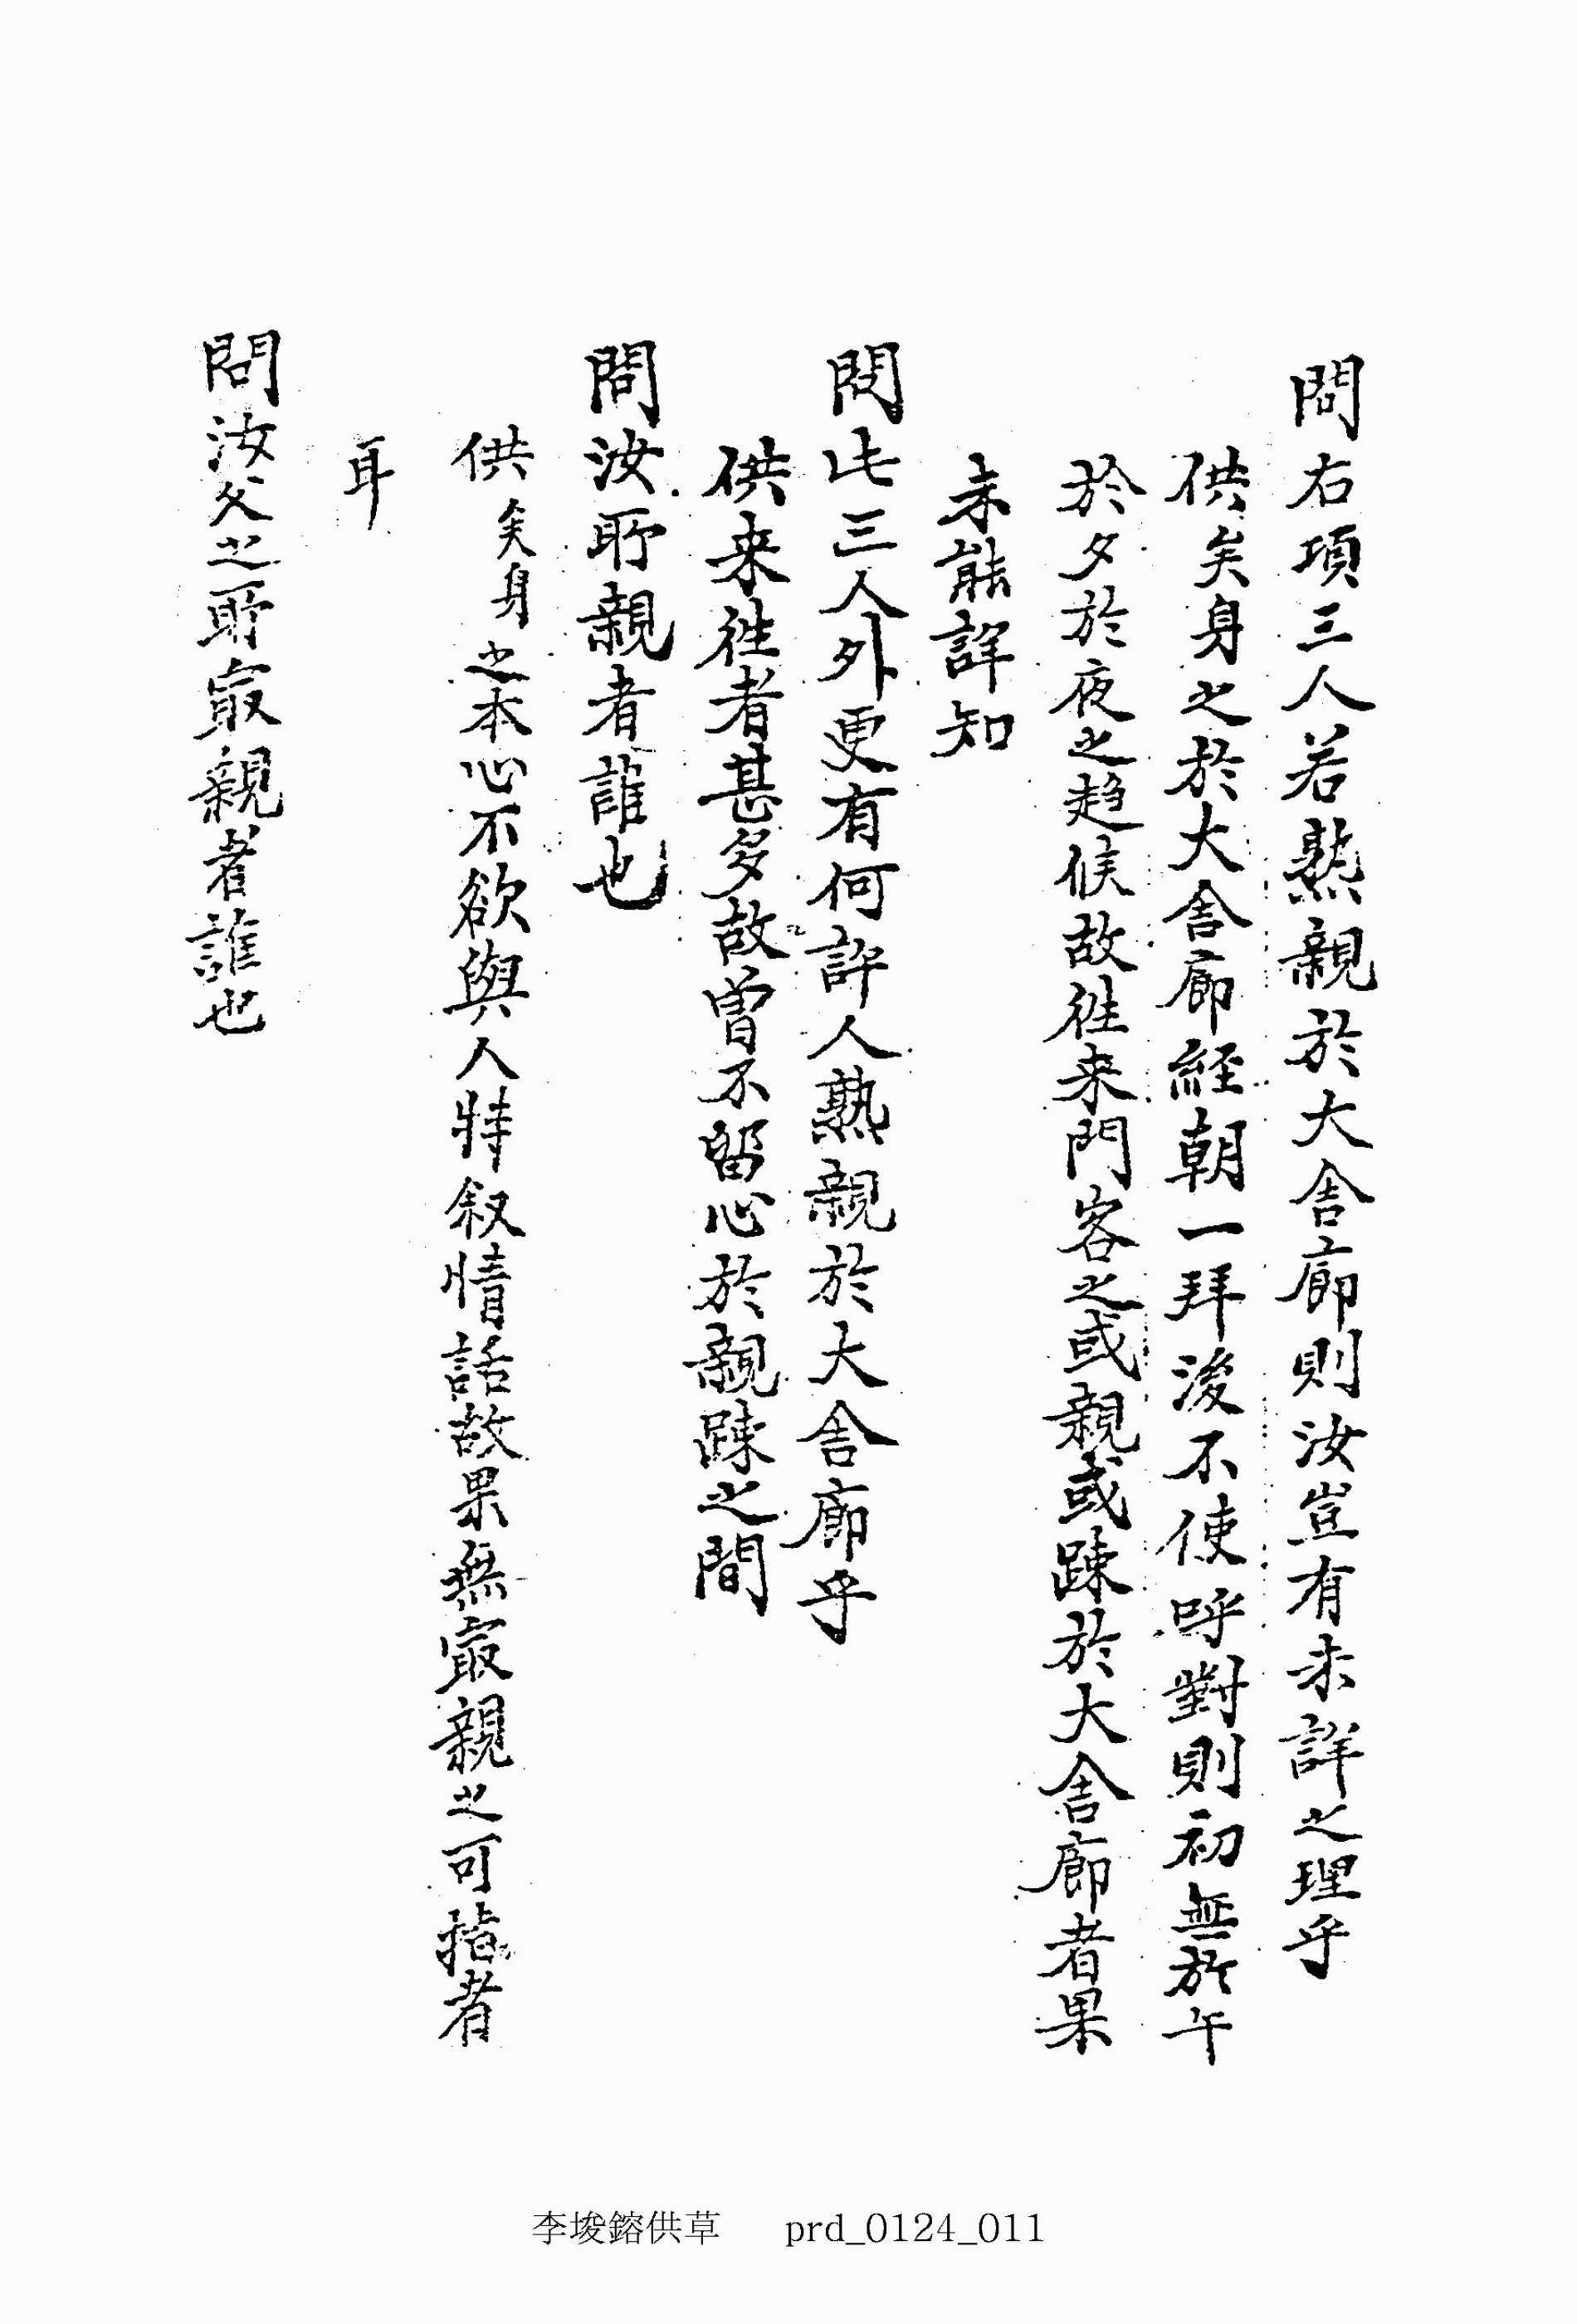 問右項三人若熟親於大舍廊則汝豈有未詳之理乎
供矣身之於大舍廊經朝一拜後不使呼對則初無於午
於夕於夜之趍候故徃来門客之或親或踈於大舍廊者果
未能詳知
問此三人外更有何許人熟親於大舍廊乎
供来徃者甚多故曾不留心於親踈之間
問汝所親者誰也
供矣身之本心不欲與人特叙情話故果無最親之可指者
耳
問汝父之所最親者誰也
李埈鎔供草 prd_0124_011